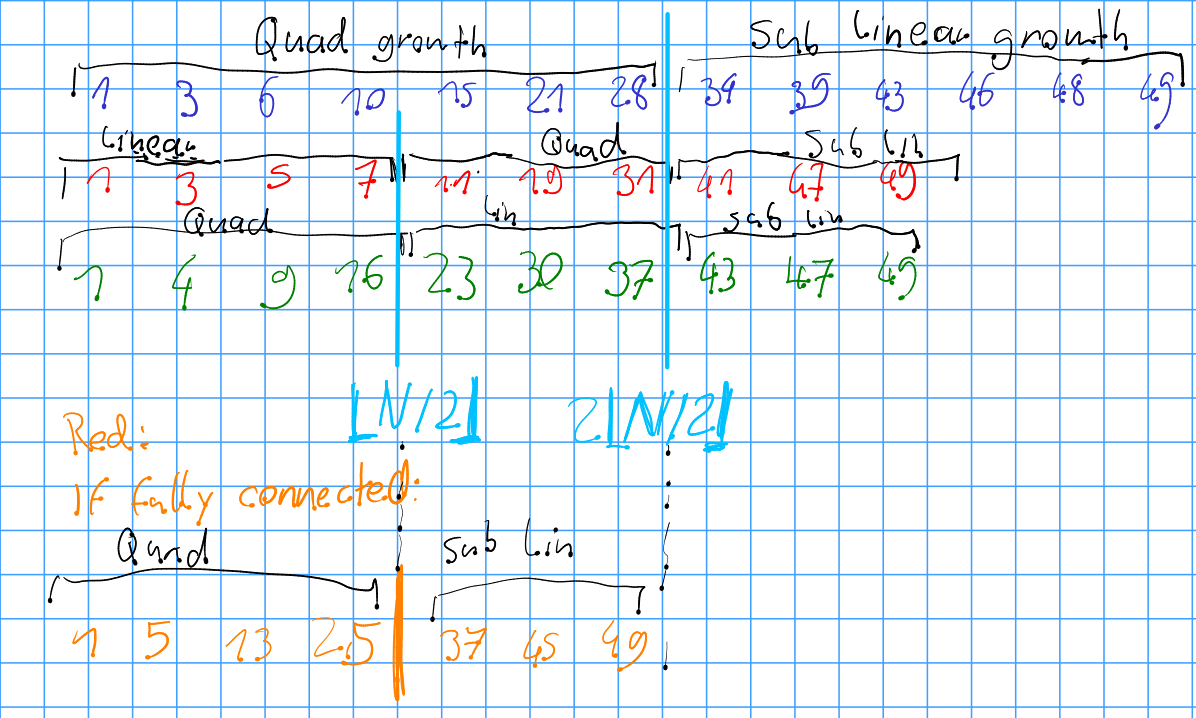 Quad growth Sub linear growth
1 3 6 10 15 21 28 34 39 43 46 48 49
Linear Quad Sub Lin
1 3 5 7 11 19 31 41 47 49
Quad Lin sub Lin
1 4 9 16 23 30 37 43 47 49
⌊N/2⌋ 2⌊N/2⌋
Red:
If fully connected:
Quad sub Lin
1 5 13 25 37 45 49